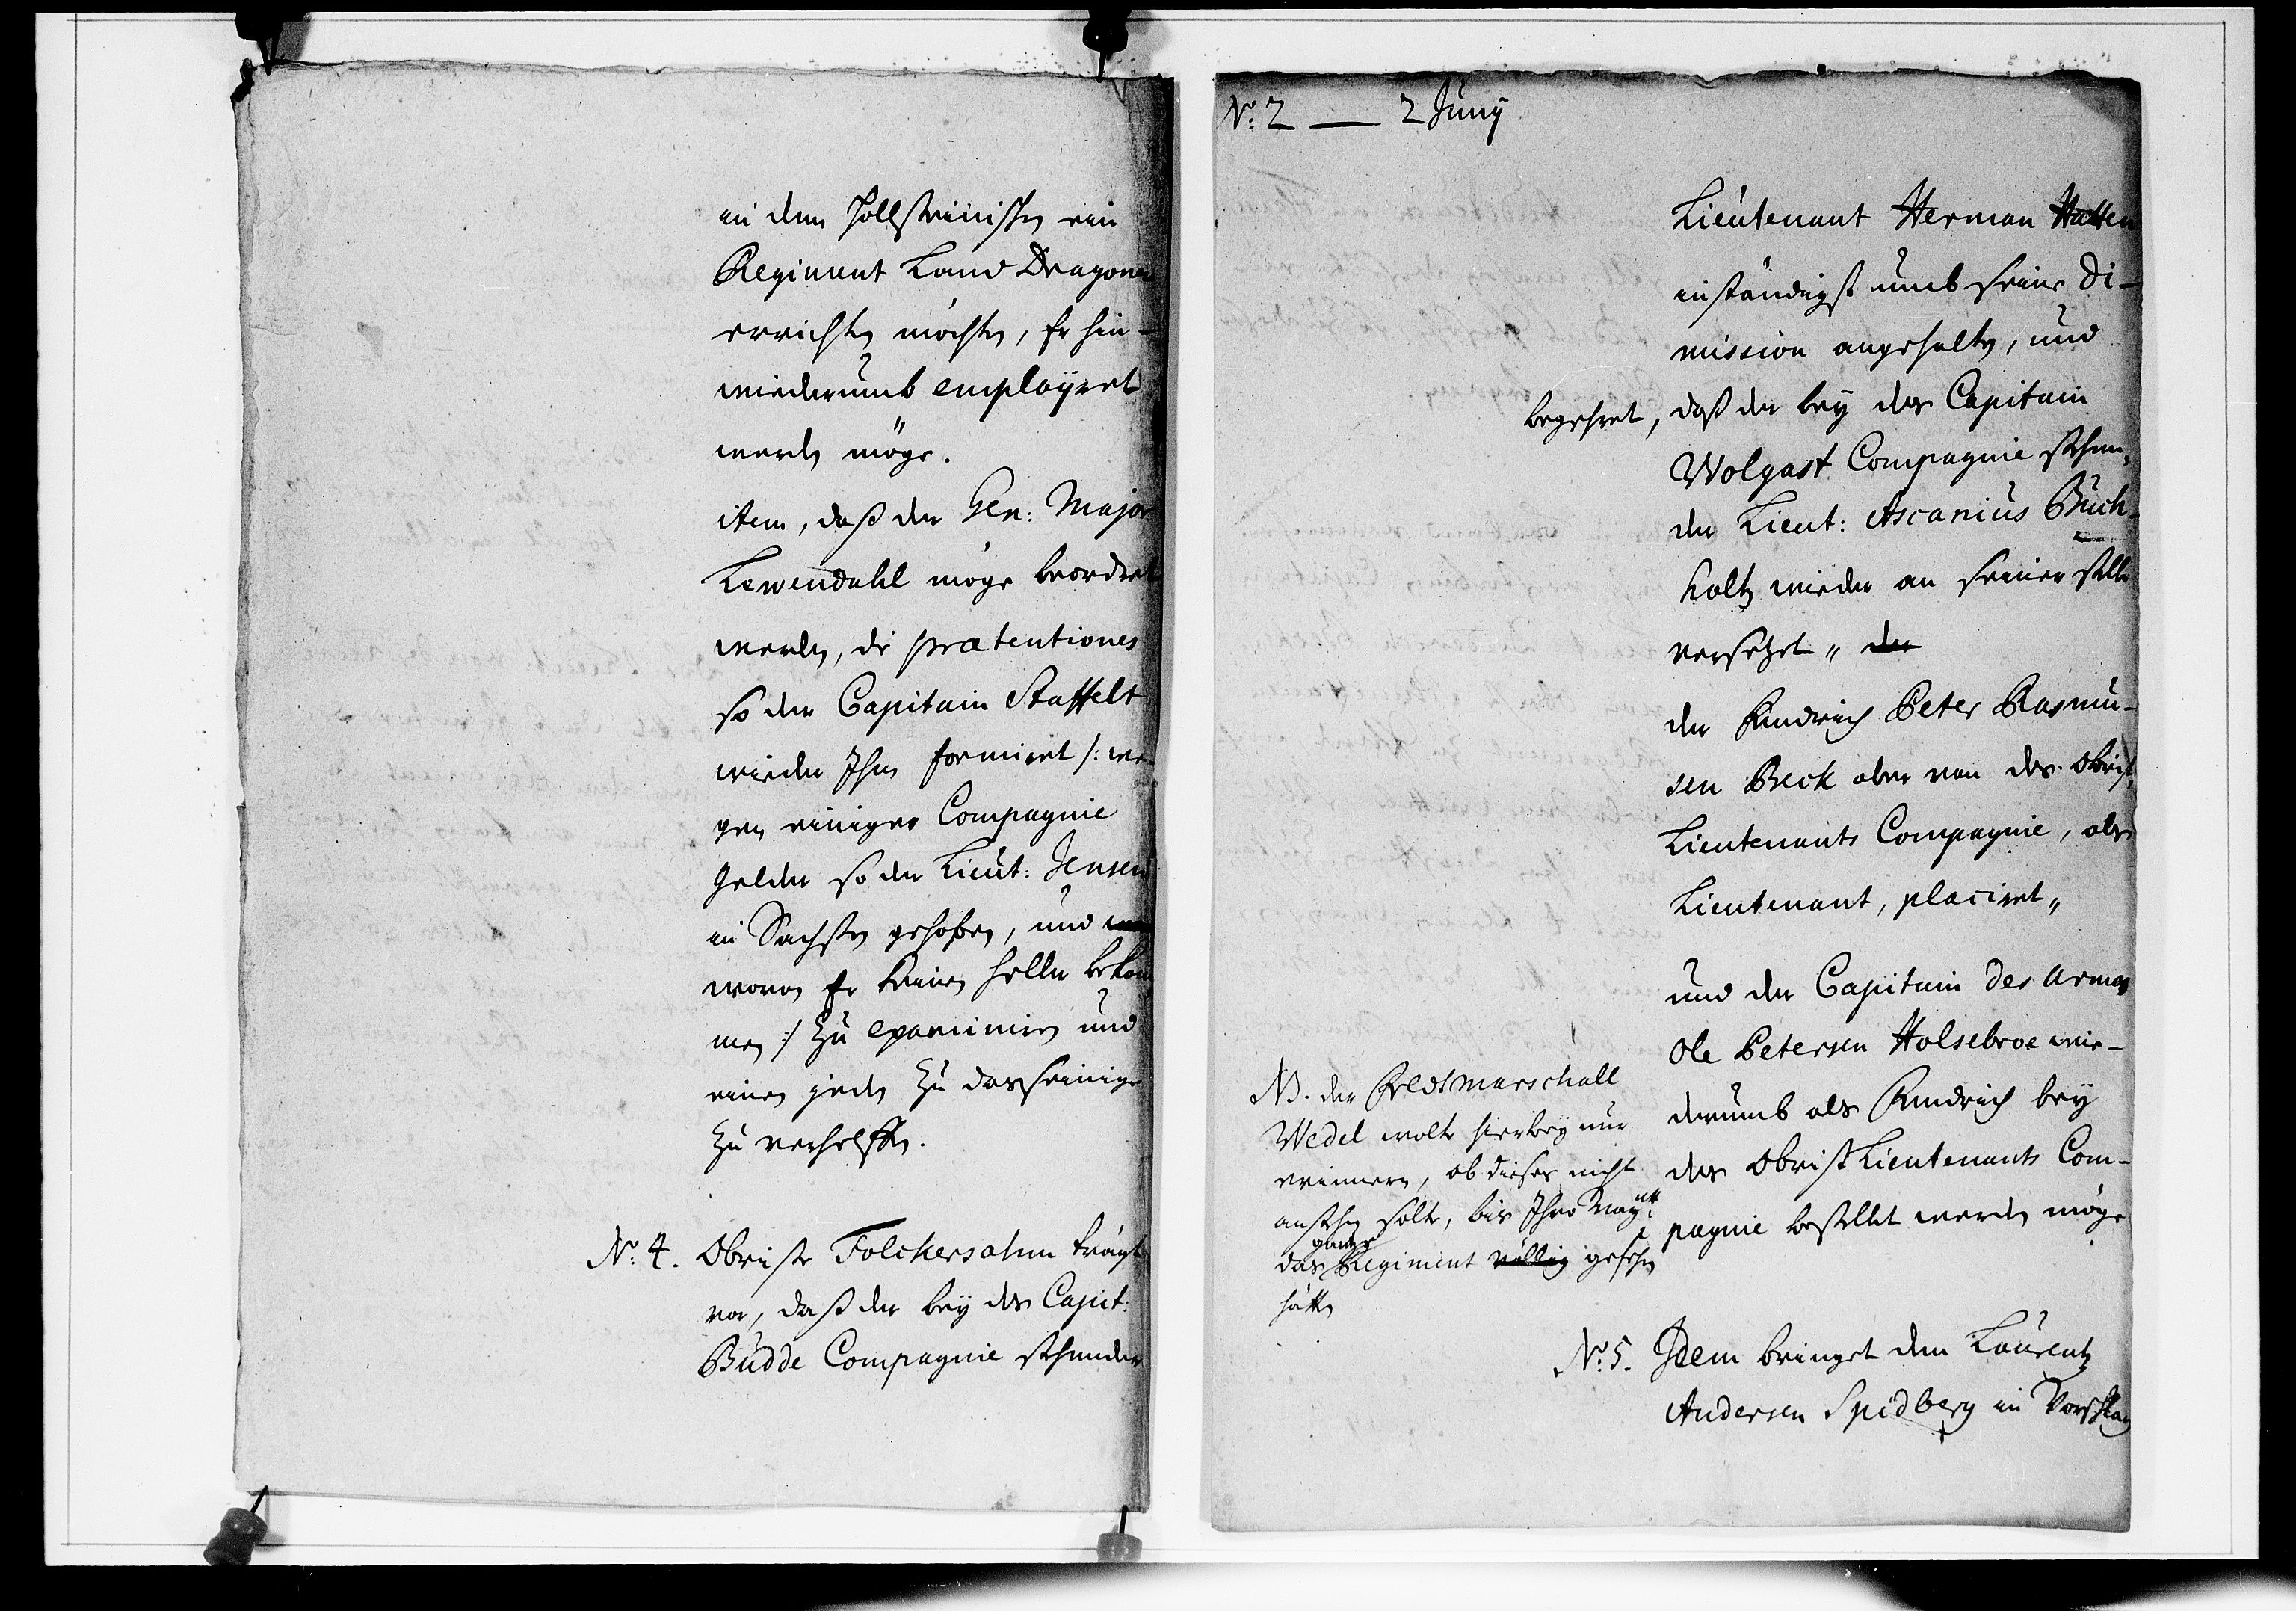 in dem Hollsteinischen ein
Regiment Land Dragoner
errichten möchten, Er hin-
wiederumb employret
werden möge.
item, daß der Gen: Major
Lewendahl möge beordret
werden, die prætentiones
so der Capitain Staffelt
wieder Ihm formiret /: we-
gen einiger Compagnie
gelder so der Lieut: Jensen
in Sachsen gehoben, und
wovon Er keinen heller bekom
men :/ zu examiniren und
einen jeden zu das seinige
zu verhelffen.
No: 4. Obrister Folckersahm trägt
vor, daß der bey des Capit:
Budde Compagnie stehender
No: 2 — 2 Juny
Lieutenant Herman Hatten
inständigst umb seine Di-
mission angehalten, und
begehret, daß der bey des Capitain
Wolgast Compagnie stehen-
der Lieut: Ascanius Buch-
holtz wieder an seiner stelle
versetzet " der
der Fendrich Peter Rasmu-
sen Beck aber von des Obrist
Lieutenants Compagnie, als
Lieutenant, placiret "
und der Capitain des armes
Ole Petersen Holsebroe wie-
derumb als Fendrich bey
des Obrist Lieutenants Com-
pagnie bestellet werden möge
NB. der Feldtmarschall
Wedel wolte hierbey nur
erinnern, ob dieses nicht
anstehen solte, bis Ihro Maytt:
gantze
das Regiment völlig gesehen
hätten
No: 5. Idem bringet den Laurentz
Andersen Spidberg in Vorschlag